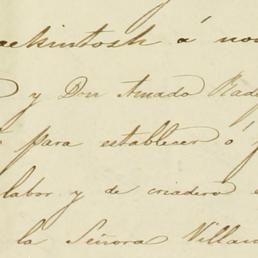 ackintosh á nom
y Don Amado Rad
para establecer ó
labor y de criadero
la Señora Villan